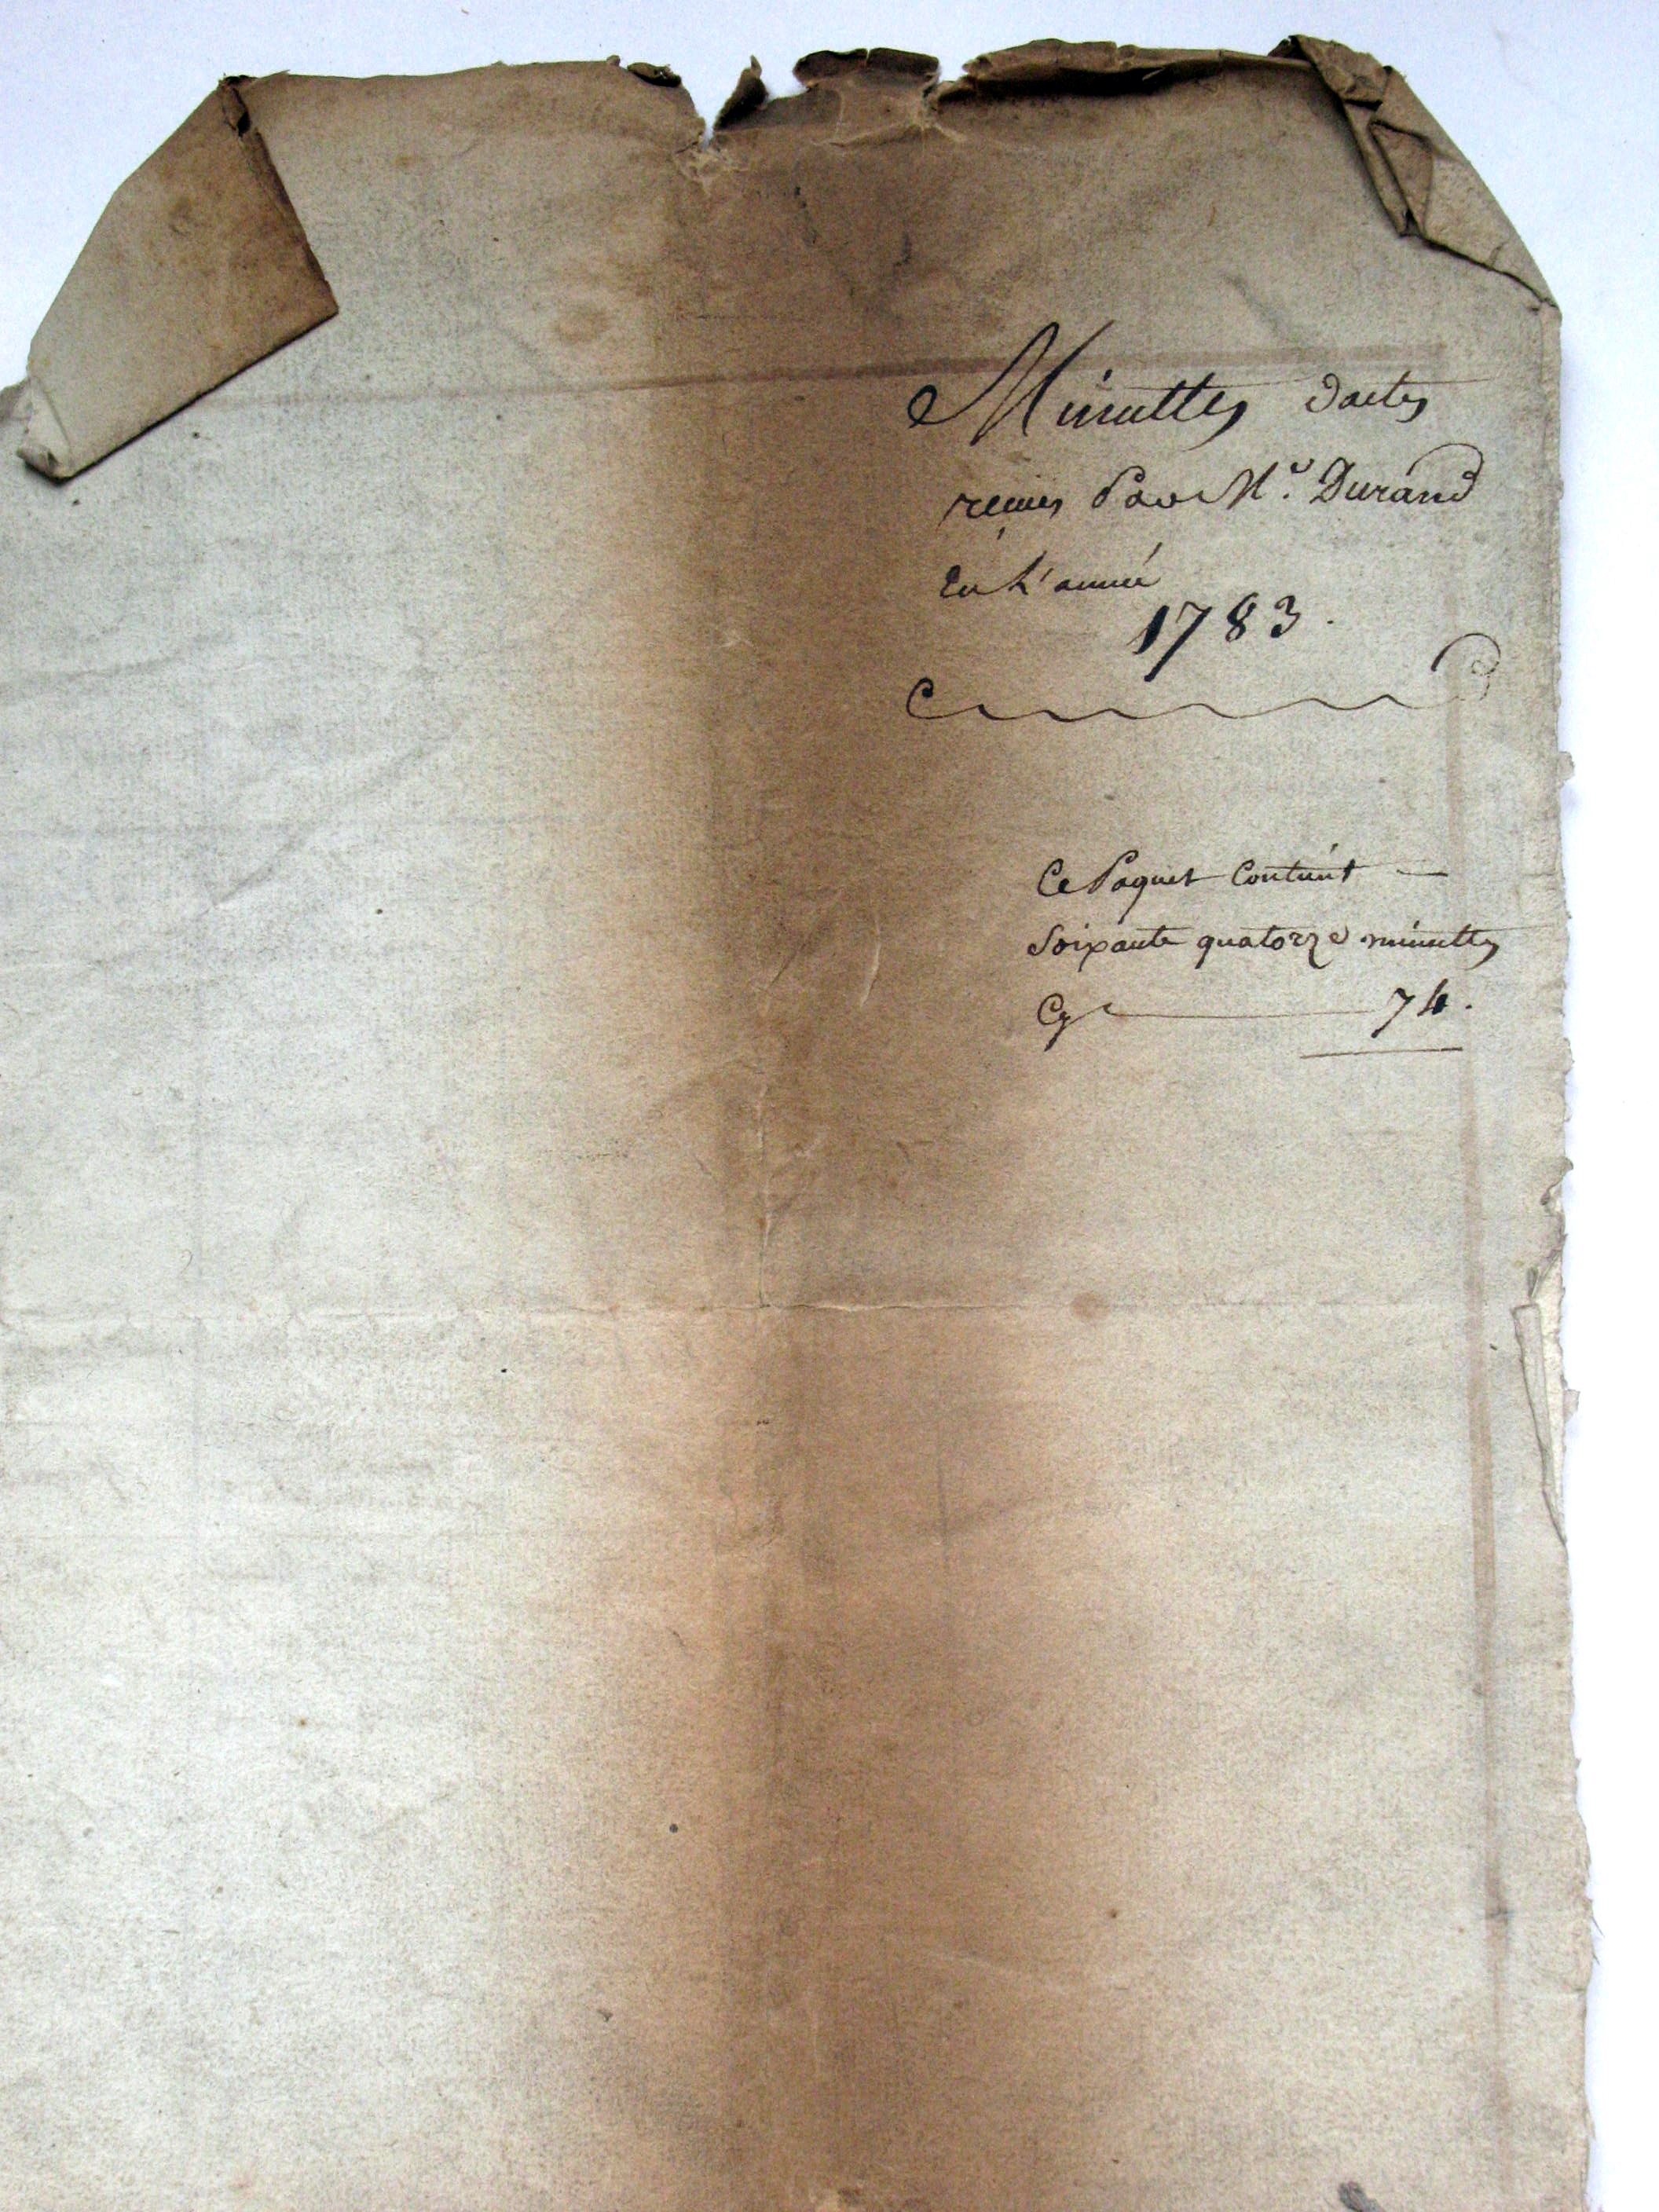 Minuttes dactes
recues Par Me. Durand
En L'année
1783.
Ce Paquet Contient
Soixante quatorze minuttes
Cy 74.